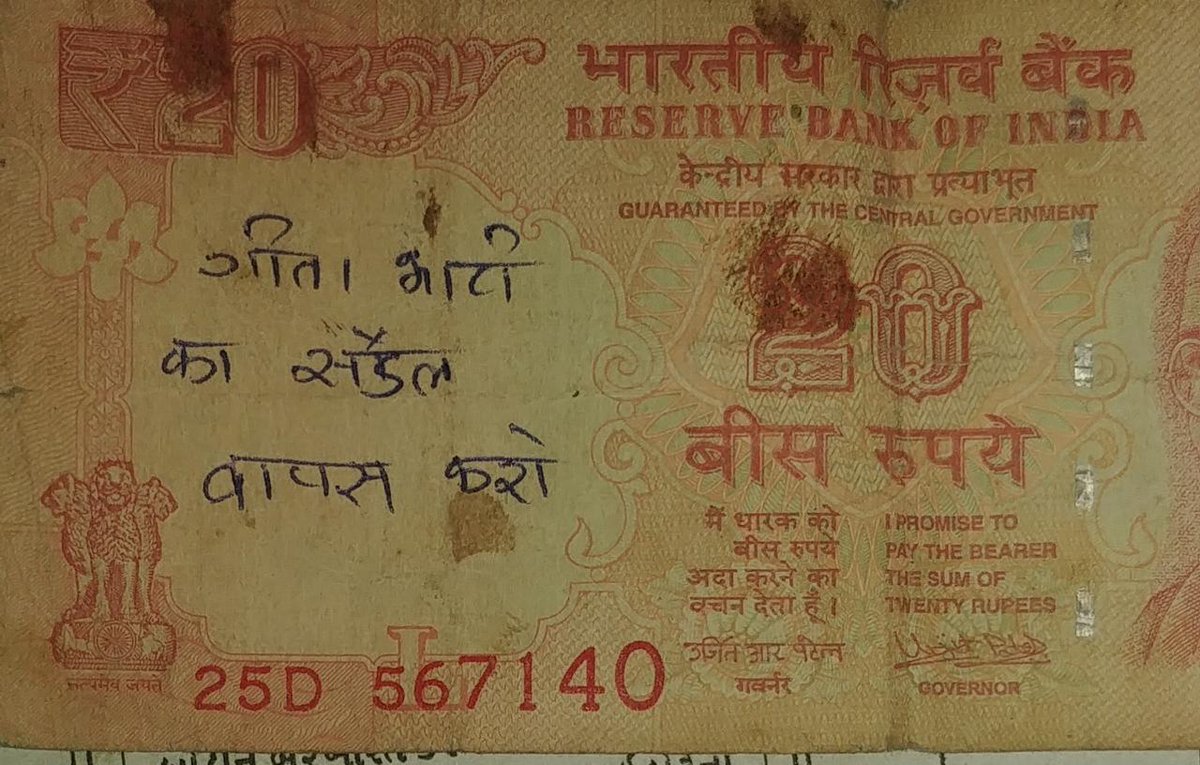 ₹20
भारतीय रिज़र्व बैंक
RESERVE BANK OF INDIA
केन्द्रीय सरकार द्वारा प्रत्याभूत
GUARANTEED BY THE CENTRAL GOVERNMENT
गीता भाटी
का सडैंल
वापस करो
20
बीस रुपये
मैं धारक को
बीस रुपये
अदा करने का
वचन देता हूँ।
I PROMISE TO
PAY THE BEARER
THE SUM OF
TWENTY RUPEES
उर्जित आर पटेल
गवर्नर
GOVERNOR
सत्यमेव जयते
L
25D 567140